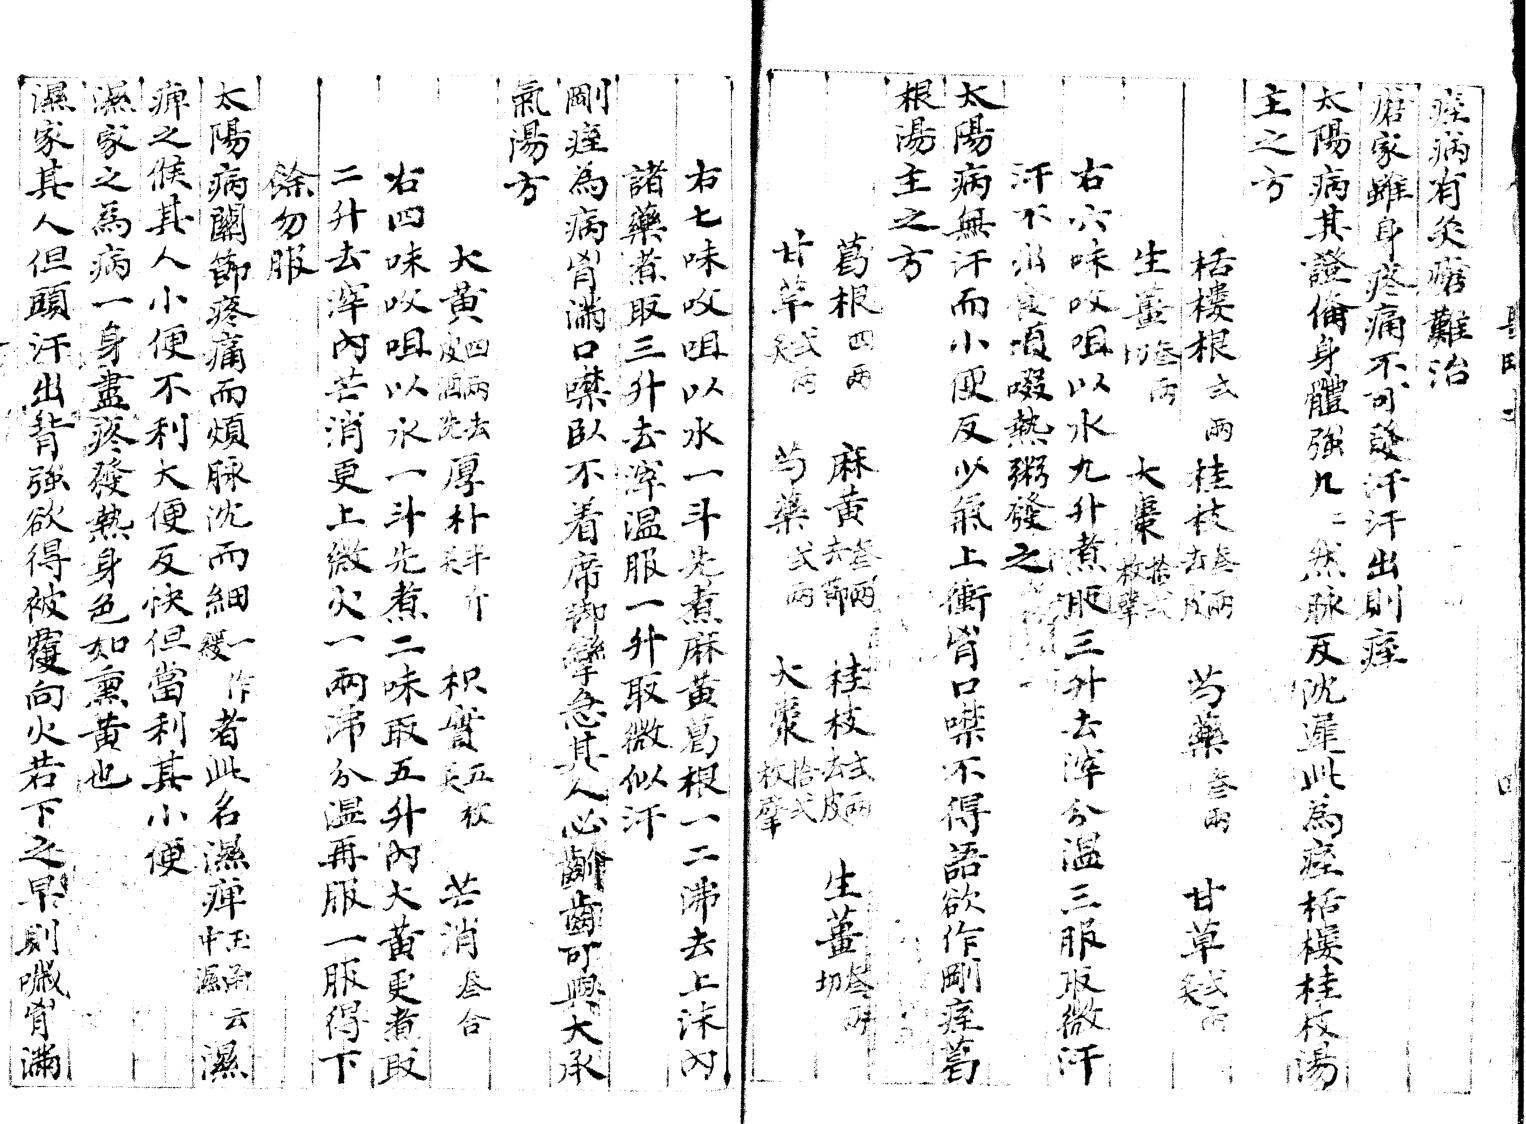 痓病有灸瘡難治
瘡家雖身疼痛不可發汗汗出則痓
太陽病其證備身體強几二然脉反沈遲此為痓栝樓桂枝湯
主之方
栝樓根弍兩 桂枝叁兩去皮 芍藥叁兩 甘草弍兩炙
生薑叁兩切 大棗拾弍枚擘
右六味㕮咀以水九升煮取三升去滓分温三服取微汗
汗不出食頃啜熱粥發之
太陽病無汗而小便反少氣上衝胷口噤不得語欲作剛痓葛
根湯主之方
葛根四兩 麻黄叁兩去節 桂枝弍兩去皮 生薑叁兩切
甘草弍兩炙 芍藥弍兩 大棗拾弍枚擘
右七味㕮咀以水一斗先煮麻黄葛根一二沸去上沫内
諸藥煮取三升去滓温服一升取微似汗
剛痓為病胷滿口噤臥不着席脚攣急其人必齘齒可與大承
氣湯方
大黄四兩去皮酒洗 厚朴半斤炙 枳實五枚炙 芒消叁合
右四味㕮咀以水一斗先煮二味取五升内大黄更煮取
二升去滓内芒消更上微火一兩沸分温再服一服得下
餘勿服
太陽病關節疼痛而煩脉沈而細一作緩者此名濕痺玉函云中濕濕
痺之候其人小便不利大便反快但當利其小便
濕家之為病一身盡疼發熱身色如熏黄也
濕家其人但頭汗出背強欲得被覆向火若下之早則噦胷滿